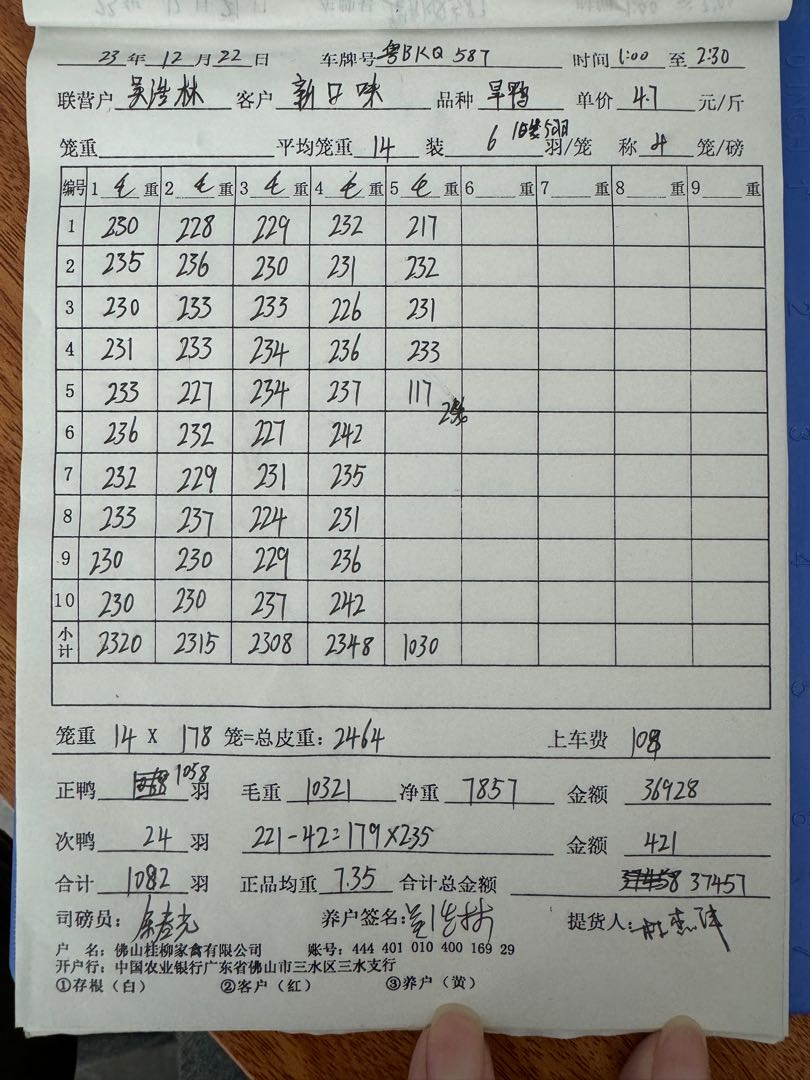 23 年 12 月 22 日 车牌号 粤BKQ 587 时间 1:00 至 2:30
联营户 吴浩林 客户 新口味 品种 旱鸭 单价 4.7 元/斤
笼重 平均笼重 14 装 6 羽/笼 称 4 笼/磅
编号 1 毛 重 2 毛 重 3 毛 重 4 毛 重 5 毛 重 6 重 7 重 8 重 9 重
1 230 228 229 232 217
2 235 236 230 231 232
3 230 233 233 226 231
4 231 233 234 236 233
5 233 227 234 237 117
6 236 232 227 242
7 232 229 231 235
8 233 237 224 231
9 230 230 229 236
10 230 230 237 242
小计 2320 2315 2308 2348 1030
笼重 14 X 178 笼=总皮重: 2464 上车费 108
正鸭 1058 羽 毛重 10321 净重 7857 金额 36928
次鸭 24 羽 221-42=179×235 金额 421
合计 1082 羽 正品均重 7.35 合计总金额 37457
司磅员: 养户签名: 提货人:
户 名: 佛山桂柳家禽有限公司 账号: 444 401 010 400 169 29
开户行: 中国农业银行广东省佛山市三水区三水支行
①存根(白) ②客户(红) ③养户(黄)